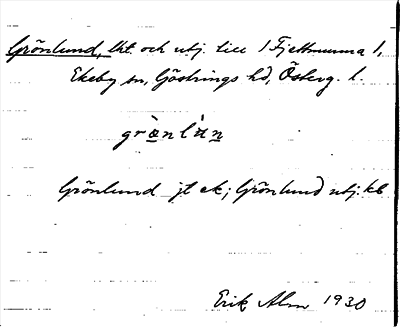 Grönlund, lht. och utj. till 1 Fjettmunna 1,
Ekeby sn, Göstrings hd, Österg. l.
grö̀nlán
Grönlund jt ek; Grönlund utj. kb
Erik Alm 1930